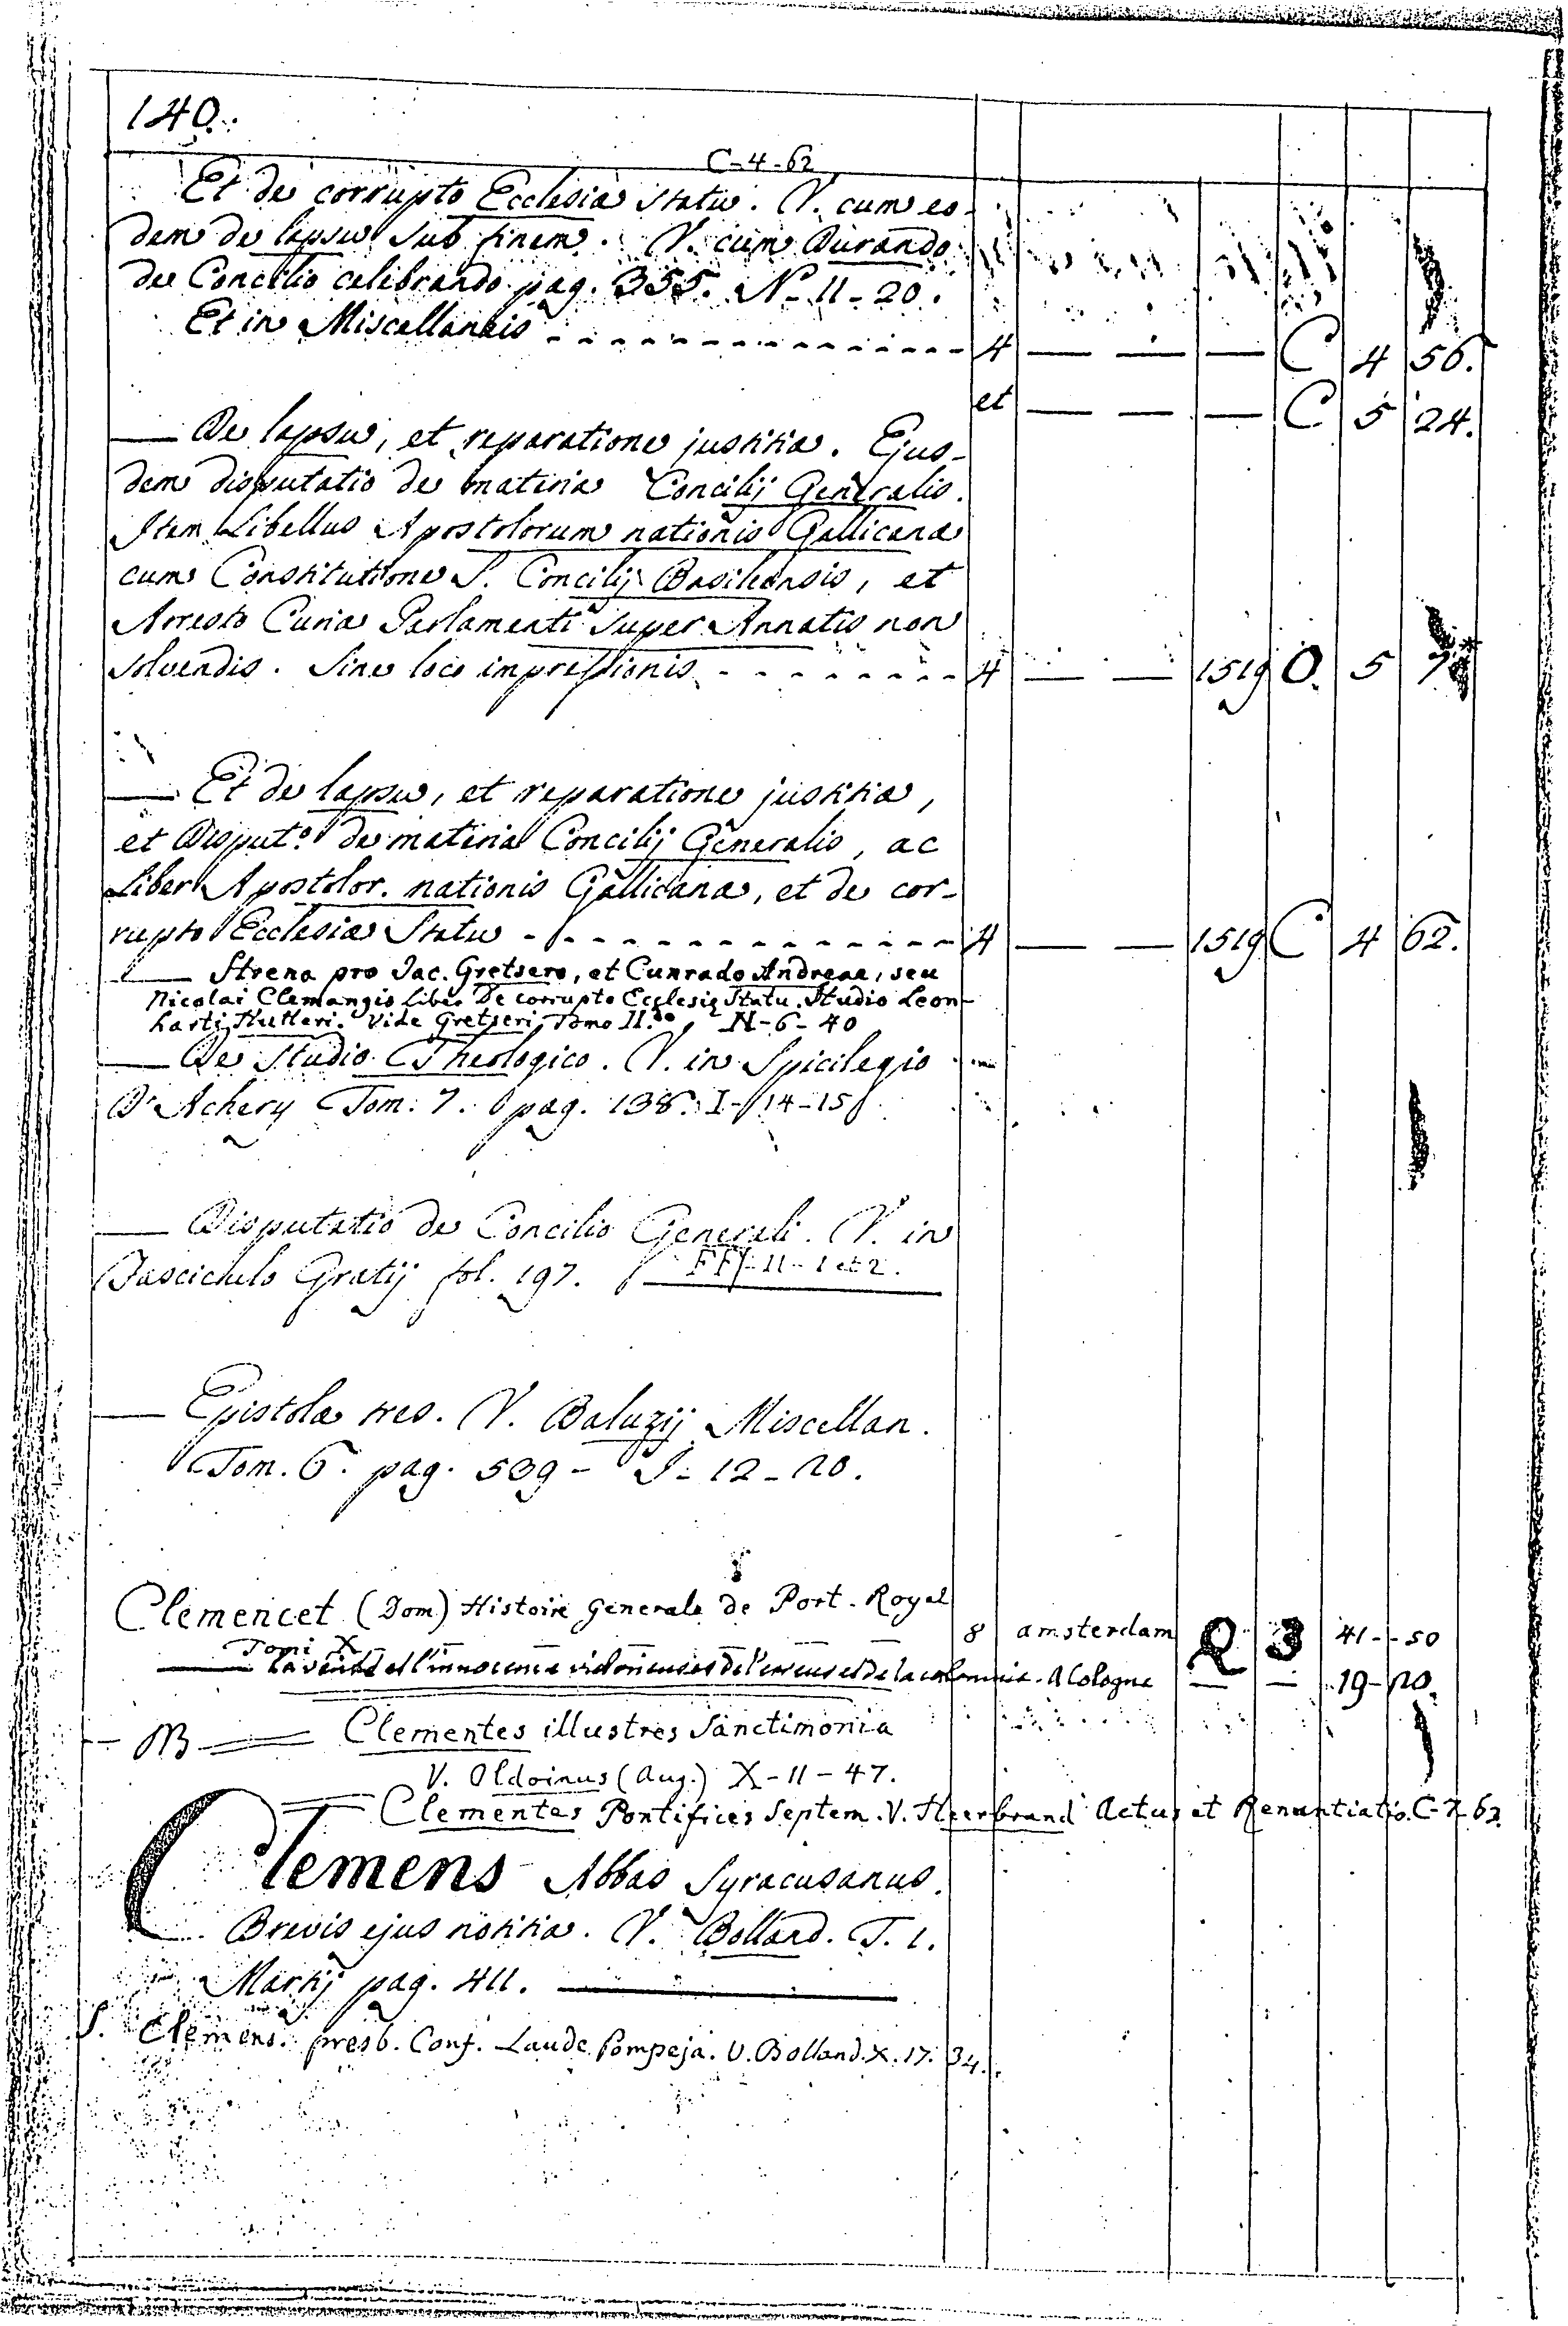 140.
C-4-62
Et de corrupto Ecclesiæ Statu. V. cum eo-
dem de lapsu sub finem. V. cum Durando
de Concilio celibrando pag. 355. N-11-20.
Et in Miscellaneis - - - - 4 — — — C 4 56.
et — — — C 5 24.
— De lapsu, et reparatione justitiæ. Ejus-
dem disputatio de materia Concilij Generalis.
Item Libellus Apostolorum nationis Gallicanæ
cum Constitutione S. Concilij Basileensis, et
Arresto Curiæ Parlamenti super Annatis non
solvendis. Sine loco impressionis - - - - 4 — — 1519 O. 5
— Et de lapsu, et reparatione justitiæ,
et Disput.º de materia Concilij Generalis, ac
Liber Apostolor. nationis Gallicanæ, et de cor-
rupto Ecclesiæ Statu - - - - 4 — — 1519 C 4 62.
— Strena pro Jac. Gretsero, et Cunrado Andreae, seu
Nicolai Clemangis liber De corrupto Ecclesię Statu. Studio Leon-
harti Hutteri. Vide Gretseri Tomo II.do N-6-40
— De Studio Theologico. V. in Spicilegio
D'Achery Tom. 7. pag. 138. I-14-15
— Disputatio de Concilio Generali. V. in
Fasciculo Gratij fol. 197. FF-11-1 et 2.
— Epistolæ tres. V. Baluzij Miscellan.
Tom. 6. pag. 539- I-12-20.
Clemencet (Dom) Histoire generale de Port-Royal
Tomi X 8 amsterdam Q 3 41--50
— La verité et l'innocence victorieuses de l'erreur et de la calomnie. A Cologne — — 19-20.
NB == Clementes illustres Sanctimonia
V. Oldoinus (Aug.) X-11-47.
== Clementes Pontifices Septem. V. Heerbrand Actus et Renuntiatio. C-7-62.
Clemens Abbas Syracusanus.
Brevis ejus notitia. V. Bolland. T. 1.
Martij pag. 411.
S. Clemens. presb. Conf. Laudæ Pompeja. V. Bolland. X. 17. 34.